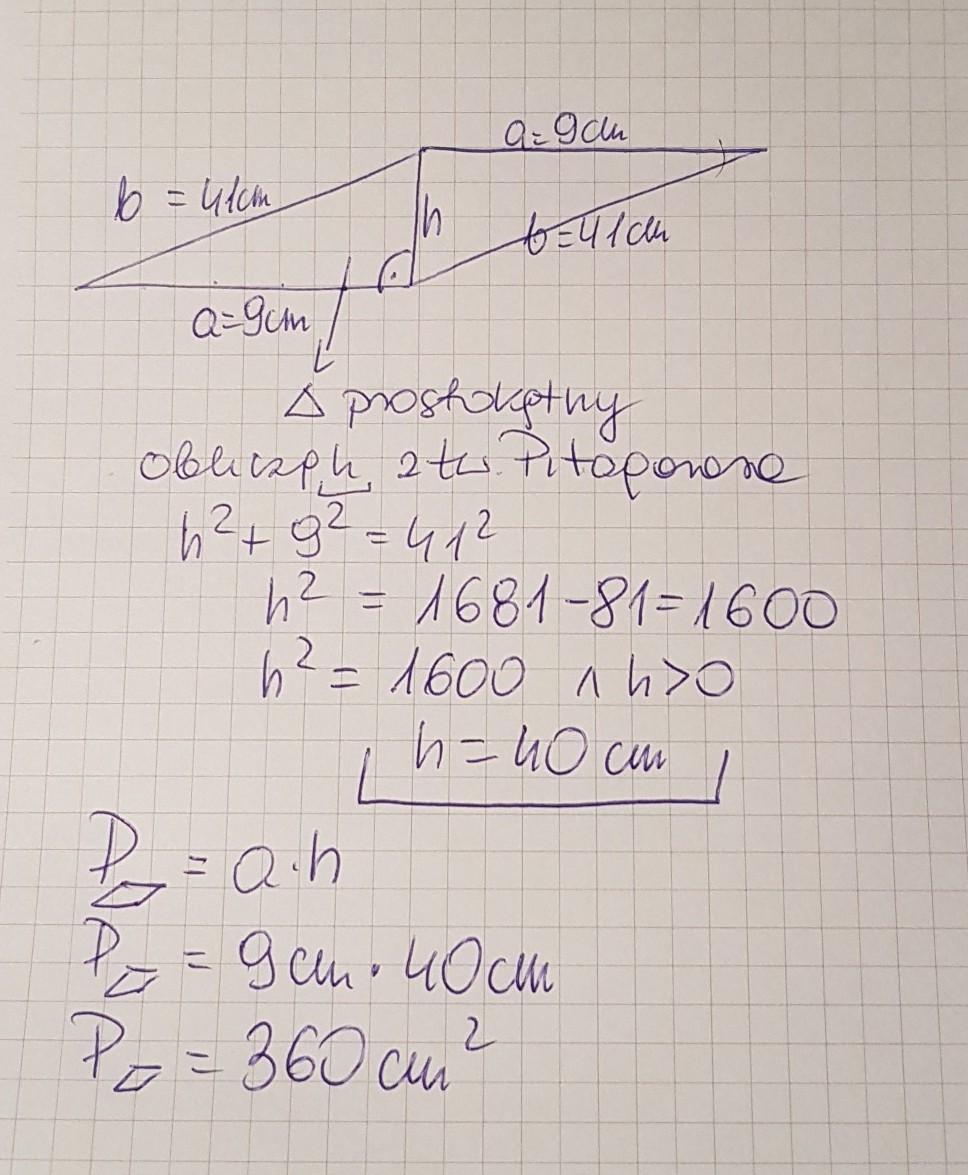 a=9cm
b = 41cm
h
b=41cm
a=9cm
Δ prostokątny
Obliczę h z tw. Pitagorasa
h² + 9² = 41²
h² = 1681-81=1600
h² = 1600 ∧ h>0
h = 40 cm
P▱ = a·h
P▱ = 9cm · 40cm
P▱ = 360cm²